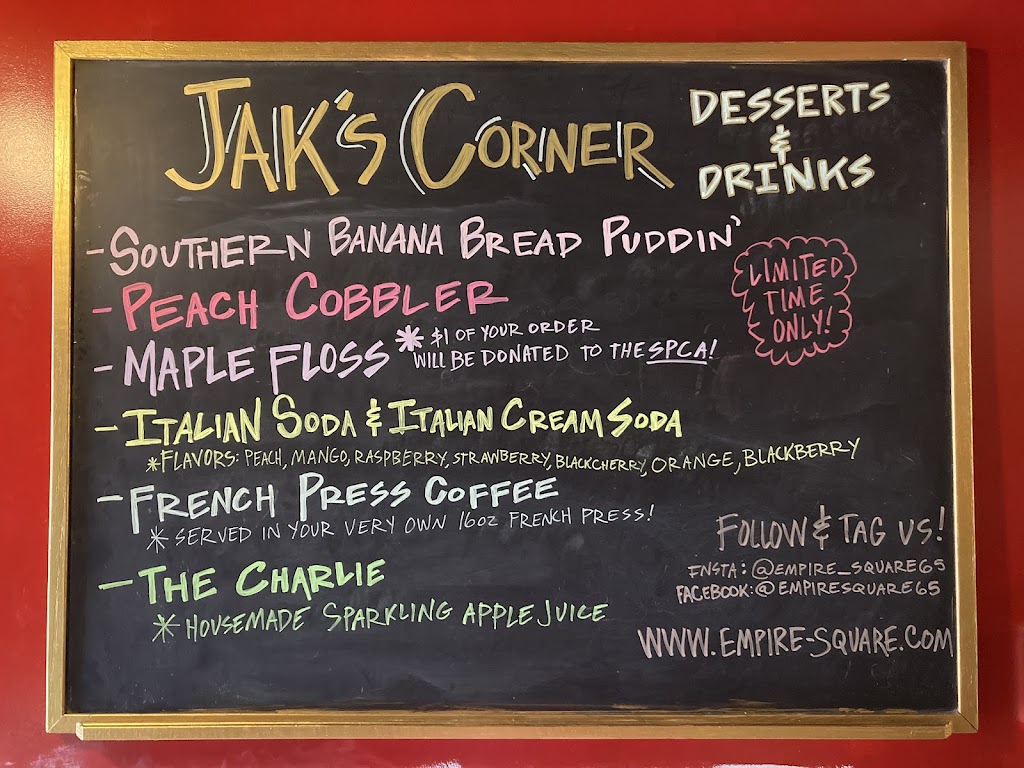 JAK'S CORNER
DESSERTS
&
DRINKS
- SOUTHERN BANANA BREAD PUDDIN'
- PEACH COBBLER
LIMITED
TIME
ONLY!
- MAPLE FLOSS * $1 OF YOUR ORDER
WILL BE DONATED TO THE SPCA!
- ITALIAN SODA & ITALIAN CREAM SODA
* FLAVORS: PEACH, MANGO, RASPBERRY, STRAWBERRY, BLACK CHERRY, ORANGE, BLACKBERRY
- FRENCH PRESS COFFEE
* SERVED IN YOUR VERY OWN 16oz FRENCH PRESS!
- THE CHARLIE
* HOUSEMADE SPARKLING APPLE JUICE
FOLLOW & TAG US!
INSTA: @EMPIRE_SQUARE65
FACEBOOK: @EMPIRESQUARE65
WWW.EMPIRE-SQUARE.COM